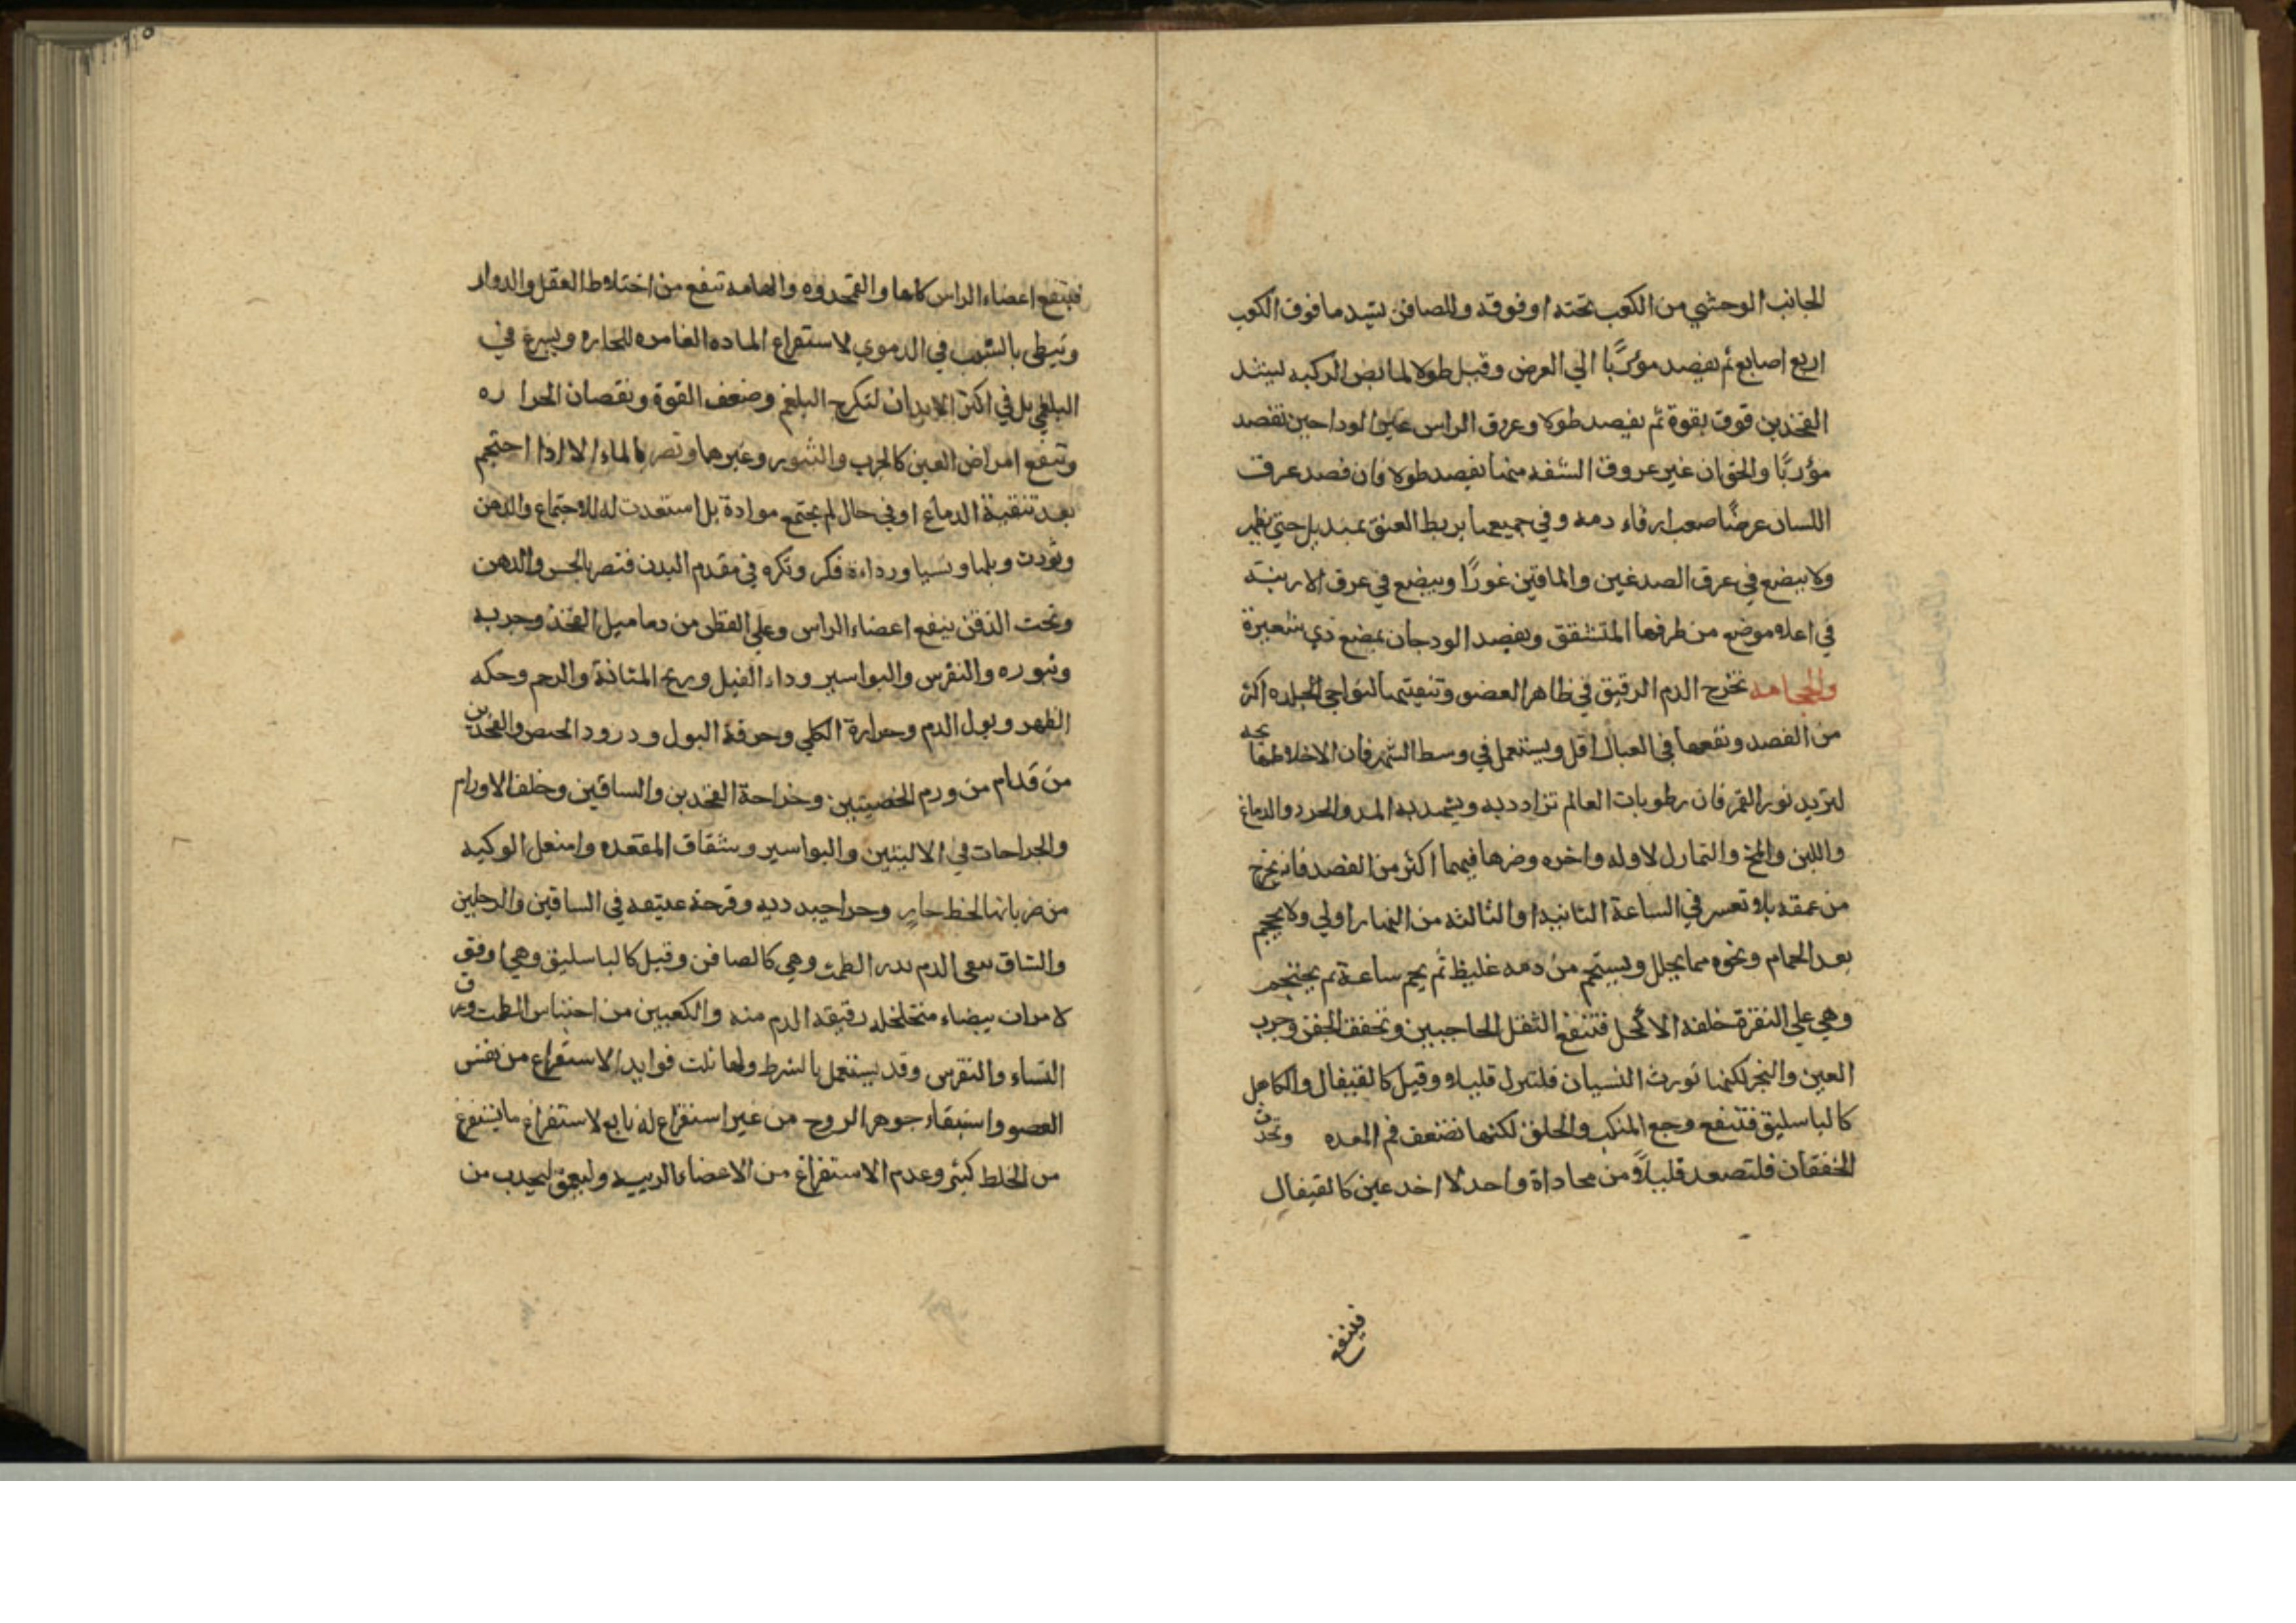 الجانب الوحشي من الكوب تحته او فوقه والصافن يشد ما فوق الكوب
اربع اصابع ثم يفصد موربًا الي العرض وقيل طولا لمابض الركبه ليشد
الفخذين فوق بقوة ثم يفصد طولا وعروق الراس غير الوداجين تفصد
موربًا والحق ان غير عروق الشفه منها يفصد طولا فان فصد عرق
اللسان عرضًا صعب ارقاء دمه وفي جميعها يربط العنق بمنديل حتي يظهر
ولا يبضع في عرق الصدغين والماقين غورًا ويبضع في عرق الارنبة
في اعلاه موضع من طرفها المتشقق ويفصد الودجان بمبضع ذي شعيرة
والحجامه تخرج الدم الرقيق في ظاهر العضو وتنقيتها لنواحي الجلده اكثر
من الفصد ونفعها في العبال اقل ويستعمل في وسط الشهر فان الاخلاط هايجه
لتزيد نور القمر فان رطوبات العالم تزاد ديه ويشهد به المد والجزر والدماغ
واللبن والمخ والثمار لا اوله واخره وضرها فيهما اكثر من الفصد فانه يخرج
من عمقه بلا تعسر في الساعة الثانيه او الثالثه من النهار اولي ولا يحجم
بعد الحمام ونحوه مما يحلل ويستحم من دمه غليظ ثم يجم ساعة ثم يحتجم
وهي علي النقرة خلفه الاكحل فتنفع الثقل الحاجبين وتخفف الجفن وجرب
العين والبخر لكنها تورث النسيان فلتنزل قليلا وقيل كالقيفال والكاهل
كالباسليق فتنفع وجع المنكب والحلق لكنها تضعف فم المعده وتحدث
الخفقان فلتصعد قليلاً من محاذاة واحد لا اخدعين كالقيفال
فينفع
فينفع اعضاء الراس كلها والقمحدوه والهامه تنفع من اختلاط العقل والدوار
وتبطي بالشيب في الدموي لاستفراع الماده الغامره للحاره ويسرع في
البلغمي بل في اكثر الابدان لتكرج البلغم وضعف القوة ونقصان الحرا ره
وتنفع امراض العين كالجرب والبثور وغيرها وتضر بالماء الا اذا احتجم
بعد تنقية الدماغ او في حال لم يجتمع موادة بل استعدت له للاجتماع والذهن
وتورث وبلها ونسيا ورداءة فكر وتكره في مقدم البدن فتضر بالحس والذهن
وتحت الذقن ينفع اعضاء الراس وعلي القطن من دماميل الفخذ وجربه
وبثوره والنقرس والبواسير وداء الفيل وريح المثانة والرحم وحكه
الظهر وبول الدم وحرارة الكلي وحرقة البول ودرود الحيض والفخذين
من قدام من ورم الخصيتين وخراجة الفخذين والساقين وخلف الاورام
والجراحات في الاليتين والبواسير وشقاق المقعده واسفل الركبه
من ضربانها لخلط حار وخراجيه رديه وقرحة عتيقه في الساقين والرجلين
والساق ينقي الدم يدر الطمث وهي كالصافن وقيل كالباسليق وهي اوفق
لامراة بيضاء متخلخله رقيقة الدم منه والكعبين من احتباس الطمث وعرق
النساء والنقرس وقد يستعمل بالشرط ولها ثلت فوايد الاستفراع من نفس
العضو واستبقاء جوهر الروح من غير استفراع له تابع لاستفراغ ما يستفرغ
من الخلط كثير وعدم الاستفراغ من الاعضاء الرييسه وليعمق ليجذب من